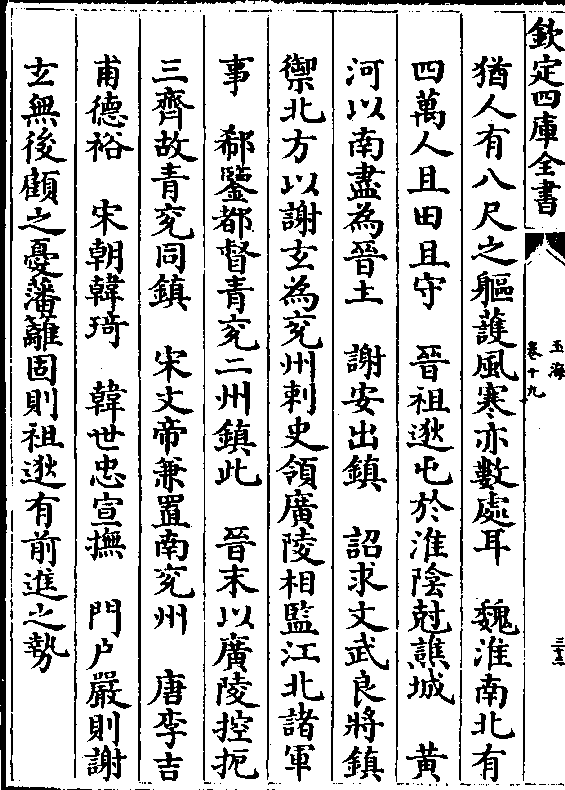 欽定四庫全書
玉海
卷十九
猶人有八尺之軀䕶風寒亦數處耳　魏淮南北有
四萬人且田且守　晉祖逖屯於淮陰尅譙城　黄
河以南盡為晉土　謝安出鎮　詔求文武良將鎮
禦北方以謝玄為兖州刺史領廣陵相監江北諸軍
事　郗鑒都督青兖二州鎮此　晉末以廣陵控扼
三齊故青兖同鎮　宋文帝兼置南兖州　唐李吉
甫德裕　宋朝韓琦　韓世忠宣撫　門户嚴則謝
玄無後顧之憂藩籬固則祖逖有前進之勢